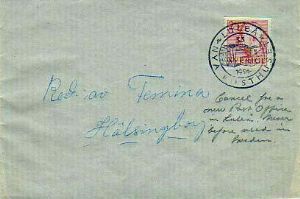 VAN LULEÅ VÄXTHUS
1956
SVERIGE
Red. av Femina
Hälsingborg
Cancel from
new Post Office
in Luleå. Never
before used in
Sweden.